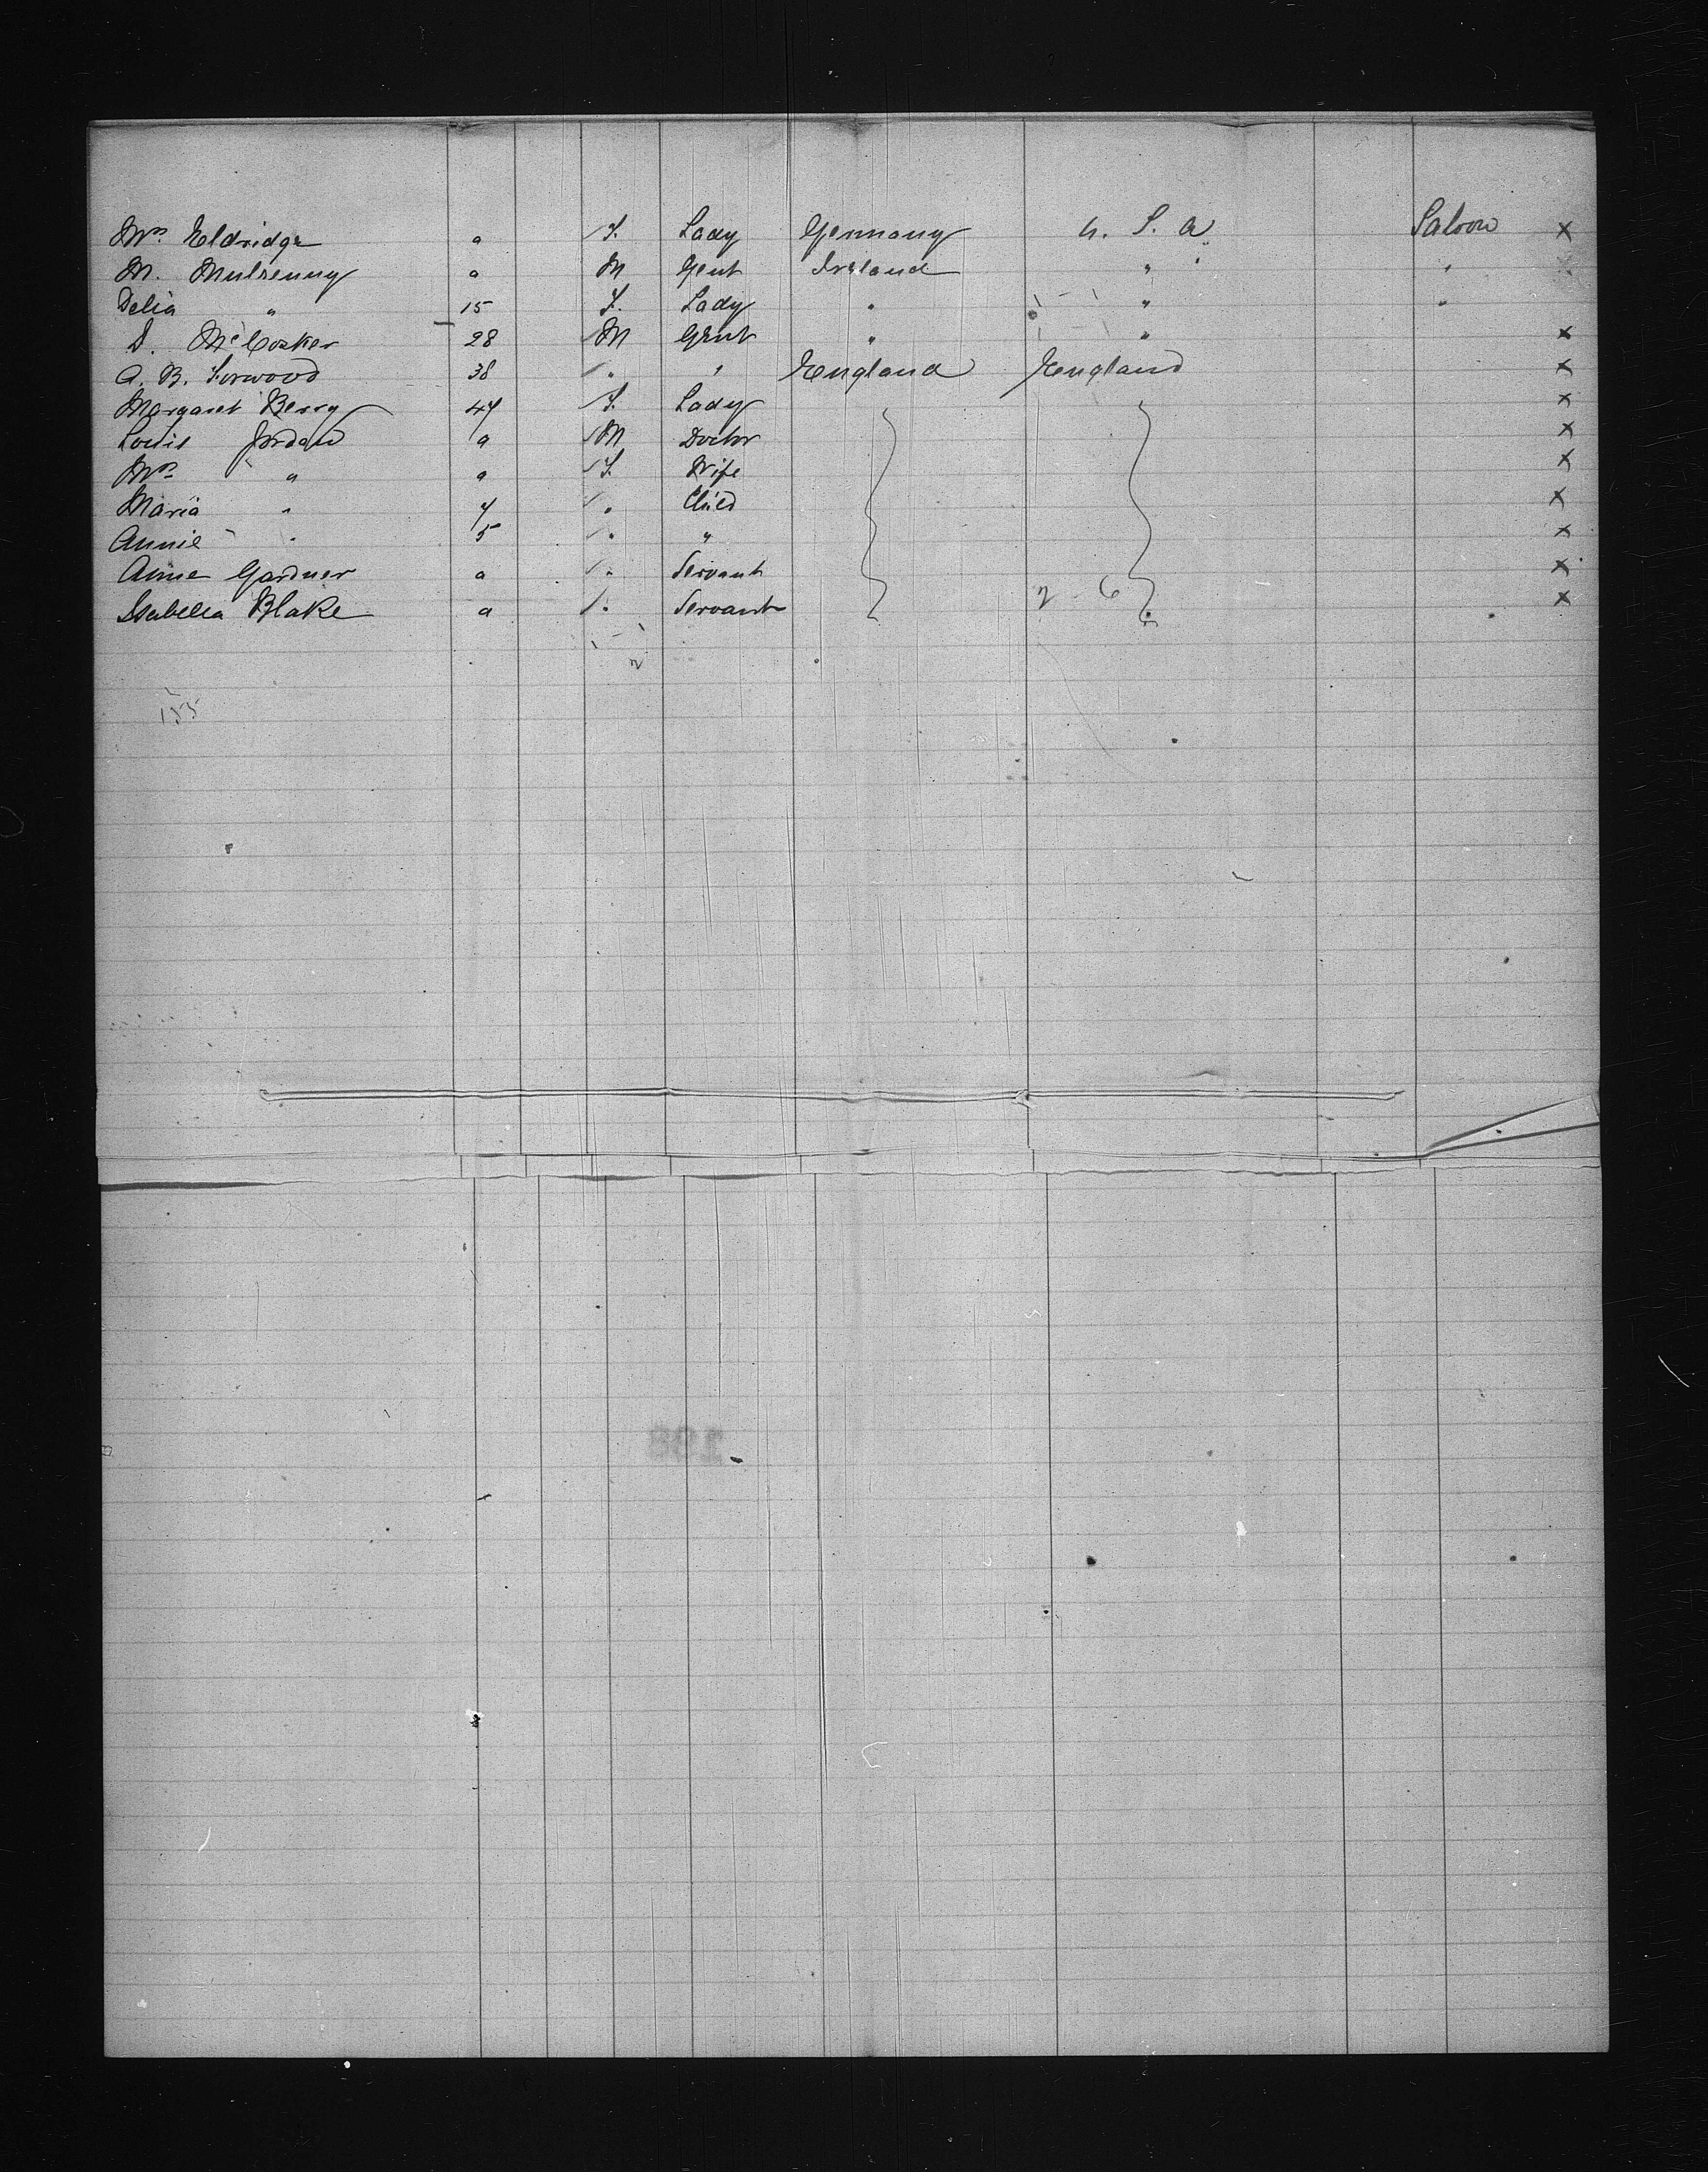 Mrs. Eldridge a F. Lady Germany U. S. A. Saloon x
M. Mulrenny a M Gent Ireland " "
Delia " 15 F. Lady " " "
D. McCosker 28 M Gent " " x
A. B. Forwood 38 " " England England x
Margaret Berry 47 F. Lady x
Louis Jordan a M Doctor x
Mrs. " a F. Wife x
Maria " 7 " Child x
Annie " 5 " " x
Anne Gardner a " Servant x
Isabella Blake a " Servant 2 - 6 x
2
155
198